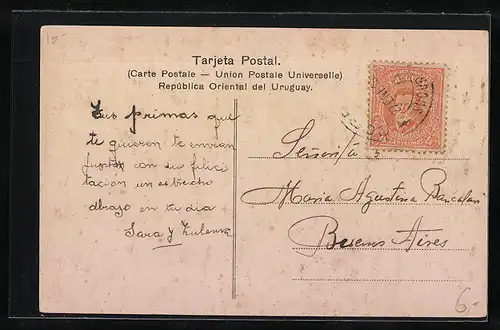 10
Tarjeta Postal.
(Carte Postale — Union Postale Universelle)
República Oriental del Uruguay.
Tus primas que
te quieren te envian
con su felici
tacion un estrecho
abrazo en tu dia
Sara y Zulema
Señorita
Maria Agustina
Buenos Aires
6,-